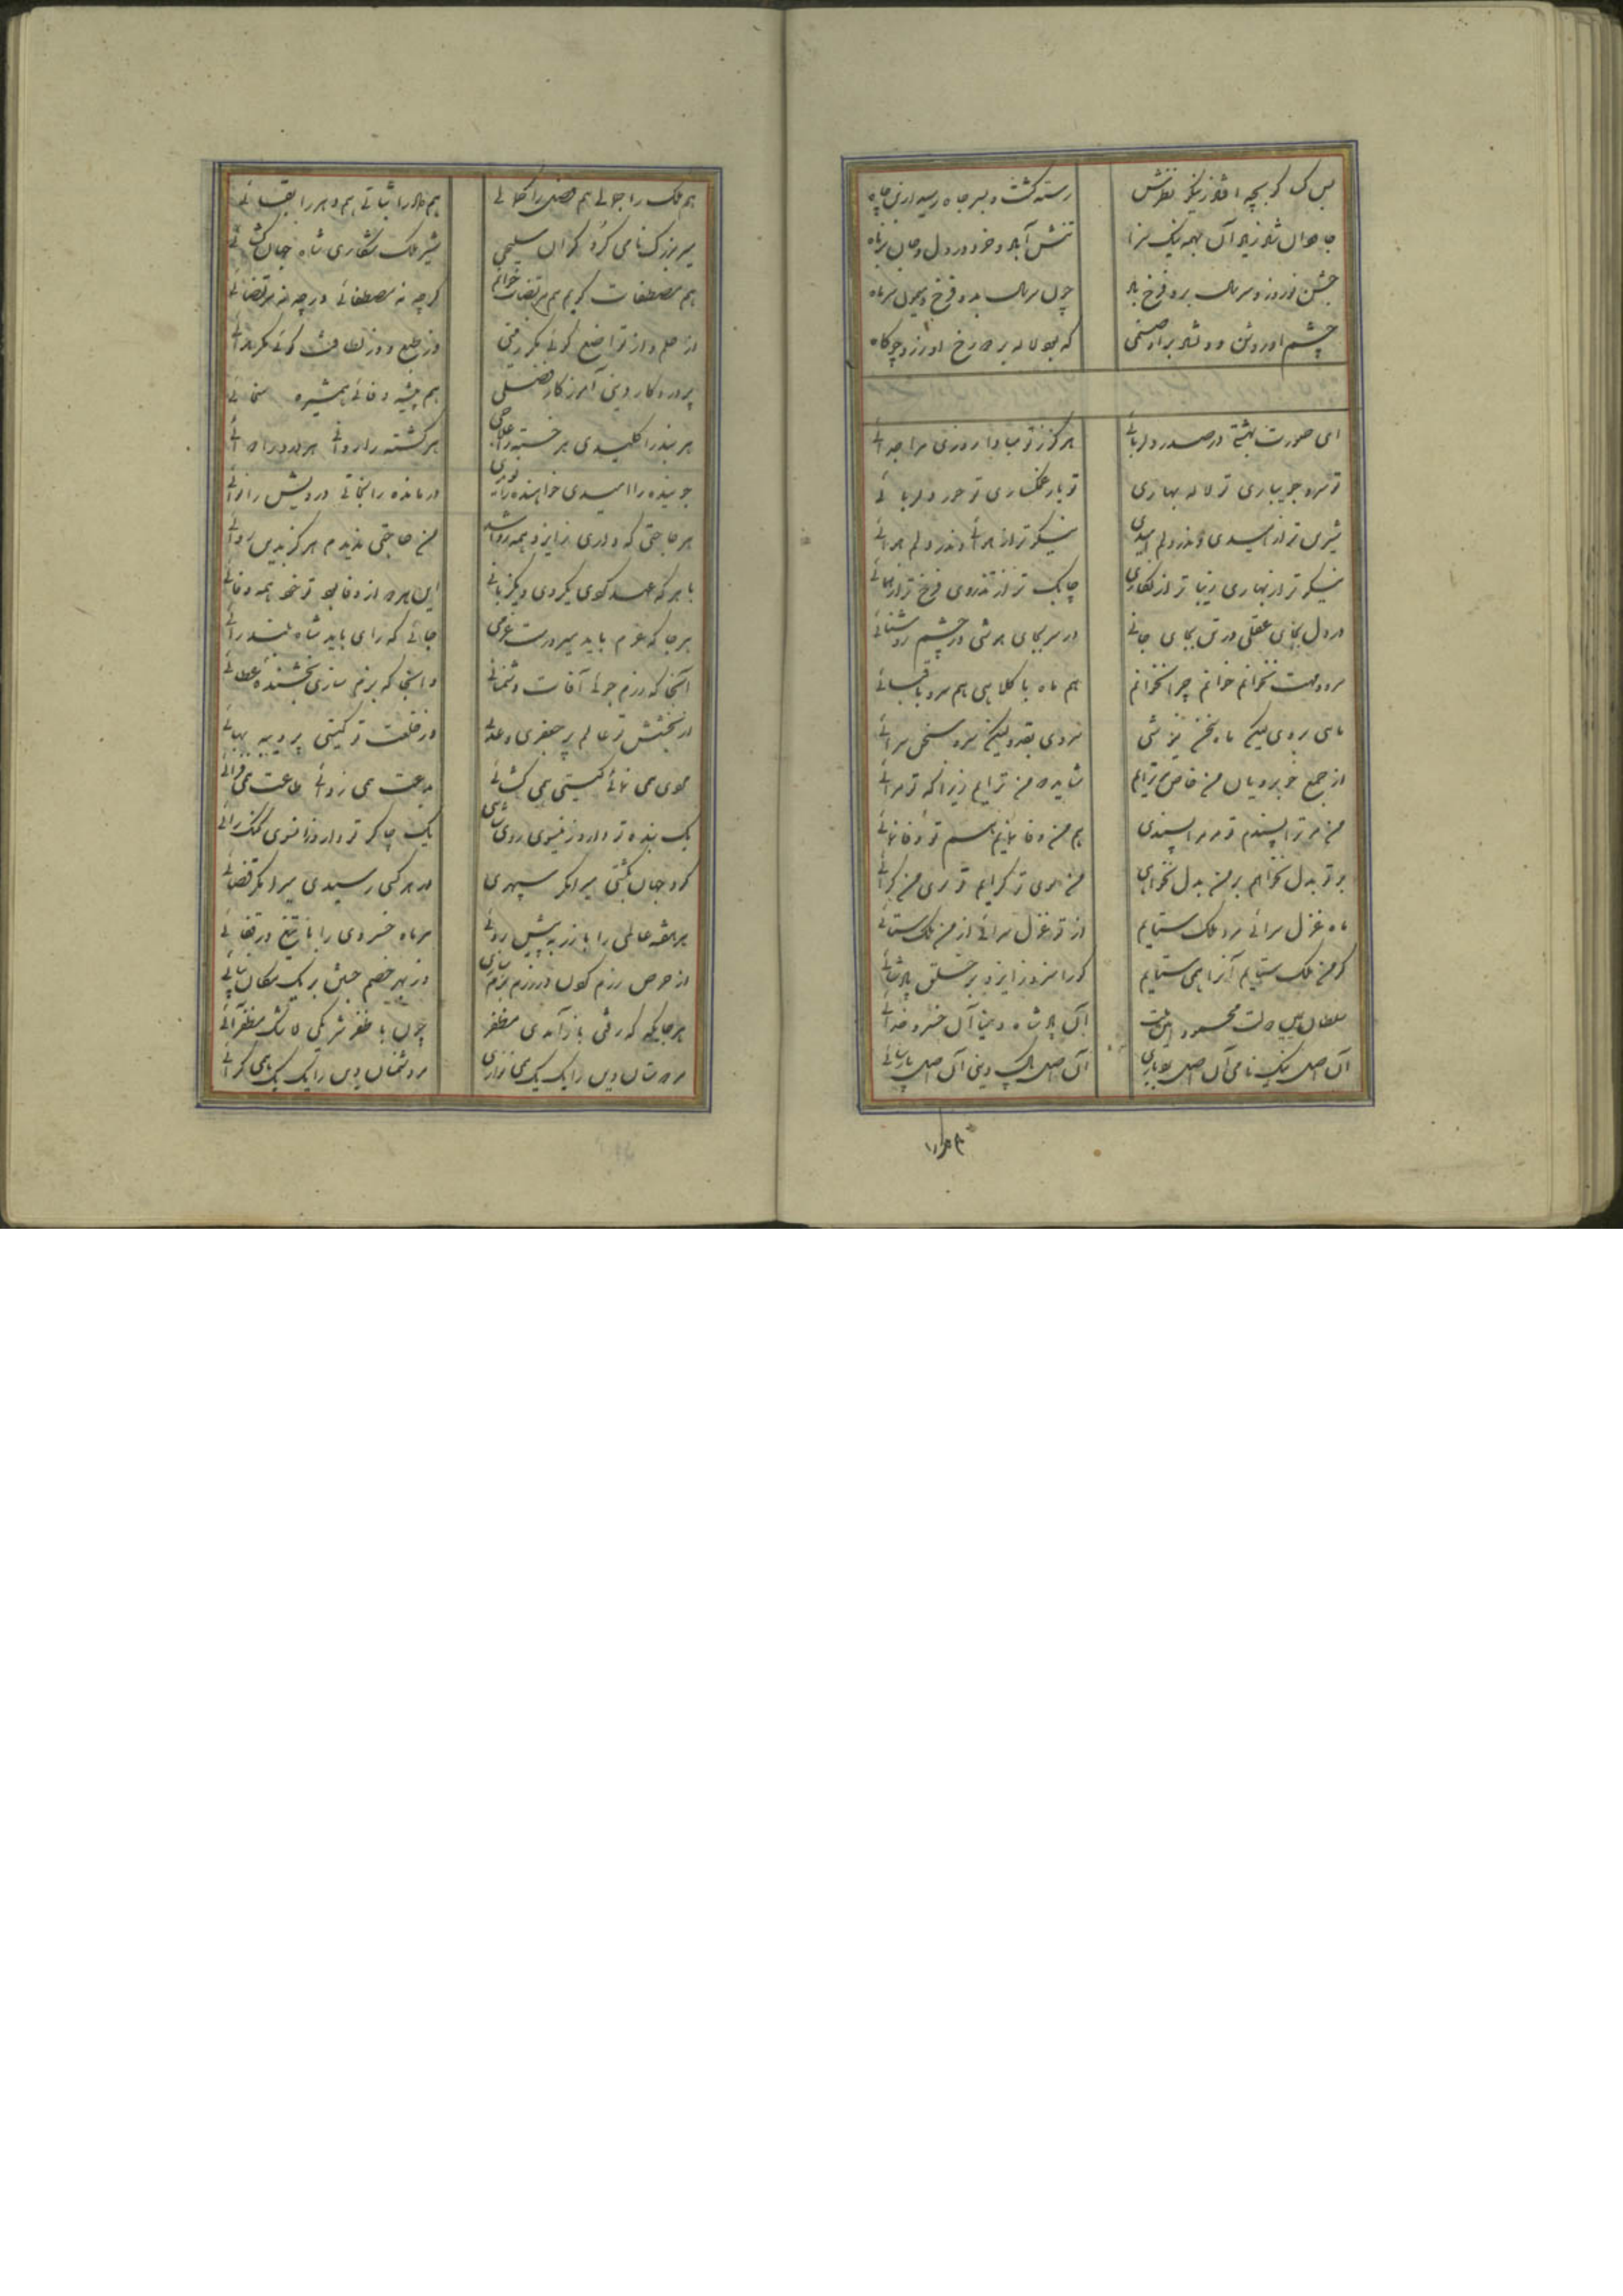 بس کس کو بچه افتاد ز نیکو نظرش
رسته گشت و بسر جاه رسید از بن چاه
جاودان شاد زیاد آن بهمه نیک سزا
تنش آباد و خرد در دل و جان برناه
جشن نوروز و سر سال برو فرخ باد
چون سر سال بدو فرخ و میمون سر ماه
چشم او روشن و دلشاد بروی صنمی
که بود لاله بر رخ او زرد چو کاه
ای صورت بهشتی در صدره بهائی
هرگز ز تو مبادا روزی مرا جدائی
تو سرو جویباری تو لاله بهاری
تو یار غمگساری تو حور دلربائی
شیرین تر از امیدی واندر دلم امیدی
نیکوتر از هوائی واندر دلم هوائی
نیکوتر از بهاری زیباتر از نگاری
چابک تر از تذروی فرخ تر از همائی
در دل بجای عقلی در تن بجای جانی
در سر بجای هوشی در چشم روشنائی
سرو و مهت نخوانم خوانم چرا نخوانم
هم ماه با کلاهی هم سرو با قبائی
ماهی بروی لیکن ماه سخن نیوشی
سروی بقد ولیکن سرو سخن سرائی
از جمع خوبرویان من خاص مر ترایم
شاید که من ترایم زیرا که تو مرائی
من مر ترا پسندم تو مر مرا پسندی
هم من وفا نمایم هم تو وفا نمائی
بر تو بدل نخواهم بر من بدل نخواهی
من سوی تو گرایم تو سوی من گرائی
ماه غزل سرائی مرد ملک ستایم
از تو غزل سرائی از من ملک ستائی
گر من ملک ستایم آنرا همی ستایم
کو را سزد ز ایزد بر خلق پادشائی
سلطان یمین دولت محمود امین ملت
آن پادشاه دنیا آن خسرو خدائی
آن اصل نیک نامی آن اصل بردباری
آن اصل پاک دینی آن اصل پارسائی
هم ملک را جمالی هم فضل را کمالی
هم داد را ثباتی هم دهر را بقائی
میر بزرگ نامی گرد گران سلیحی
شیر ملک شکاری شاه جهان گشائی
هم مصطفات گویم هم مرتضات خوانم
گرچه نه مصطفائی ورچه نه مرتضائی
از حلم وز تواضع گوئی مگر زمینی
وز طبع وز لطافت گوئی مگر هوائی
پروردگار دینی آموزگار فضلی
هم پیشه وفائی هم شیره سخائی
هر بند را کلیدی هر خسته را علاجی
هر کشته را روانی هر درد را دوائی
جوینده را امیدی خواهنده را نویدی
درمانده را نجاتی درویش را نوائی
هر حاجتی که داری ز ایزد همه روا شد
من حاجتی ندیدم هرگز بدین روائی
با هر که عهد کردی یکروی و یکزبانی
این هر دو از وفا بود تو خود همه وفائی
هر جا که عزم باید میر درست عزمی
جائی که رای باید شاه بلند رائی
آنجا که رزم جوئی آفات دشمنانی
وانجا که بزم سازی بخشنده عطائی
از بخشش تو عالم پر جعفری و عدلی
وز خلعت تو گیتی پر دیبه بهائی
هودی همی نمائی گیتی همی گشائی
بدعت همی زدائی طاعت همی فزائی
یک بنده تو دارد زینسوی رود شاهی
یک چاکر تو دارد زانسوی گنگ رائی
گرد جهان بگشتی میرا مگر سپهری
در هر کسی رسیدی میرا مگر قضائی
هر هفته عالمی را با زر به پیش روئی
هر ماه خسروی را با تیغ در قفائی
از حرص رزم کردن در رزم بزم سازی
وز بهر خصم جستن بر یک مکان نپائی
هر جایگه که رفتی باز آمدی مظفر
چون با ظفر شریکی لابد مظفر آئی
مر دوستان دین را یک یک همی نوازی
مر دشمنان دین را یک یک همی گزائی